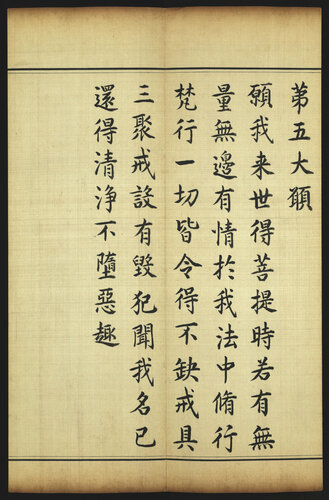 第五大願
願我来世得菩提時若有無
量無邊有情於我法中脩行
梵行一切皆令得不缺戒具
三聚戒設有毀犯聞我名已
還得清淨不墮惡趣